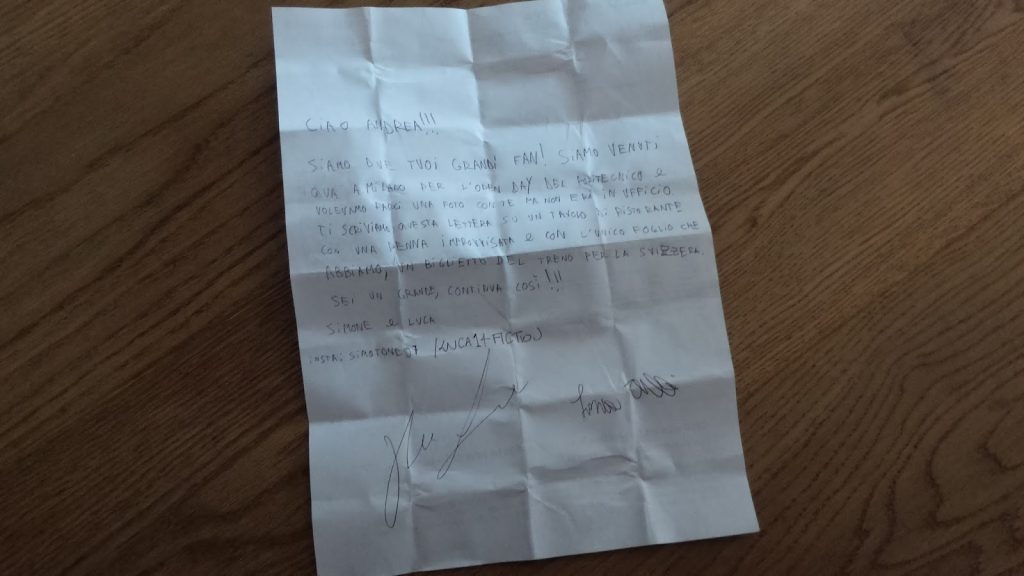 CIAO ANDREA!!!
SIAMO DUE TUOI GRANDI FAN! SIAMO VENUTI
QUA A MILANO PER L'OPEN DAY DEL POLITECNICO E
VOLEVAMO FARCI UNA FOTO CON TE MA NON ERI IN UFFICIO
TI SCRIVIAMO QUESTA LETTERA SU UN TAVOLO DI RISTORANTE
CON UNA PENNA IMPROVVISATA E CON L'UNICO FOGLIO CHE
ABBIAMO, UN BIGLIETTO DEL TRENO PER LA SVIZZERA.
SEI UN GRANDE, CONTINUA COSÌ!!!
SIMONE E LUCA